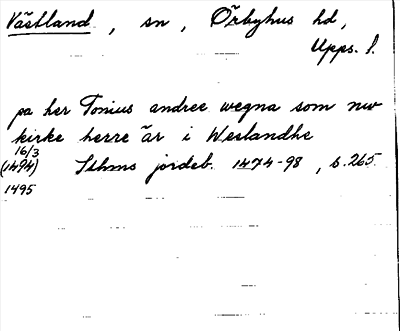 Västland, sn, Örbyhus hd,
Upps. l.
pa her Tonius andree wegna som nw
kirke herre är i Weslandhe
16/3
(1494) Sthms jordeb. 1474-98, s. 265.
1495